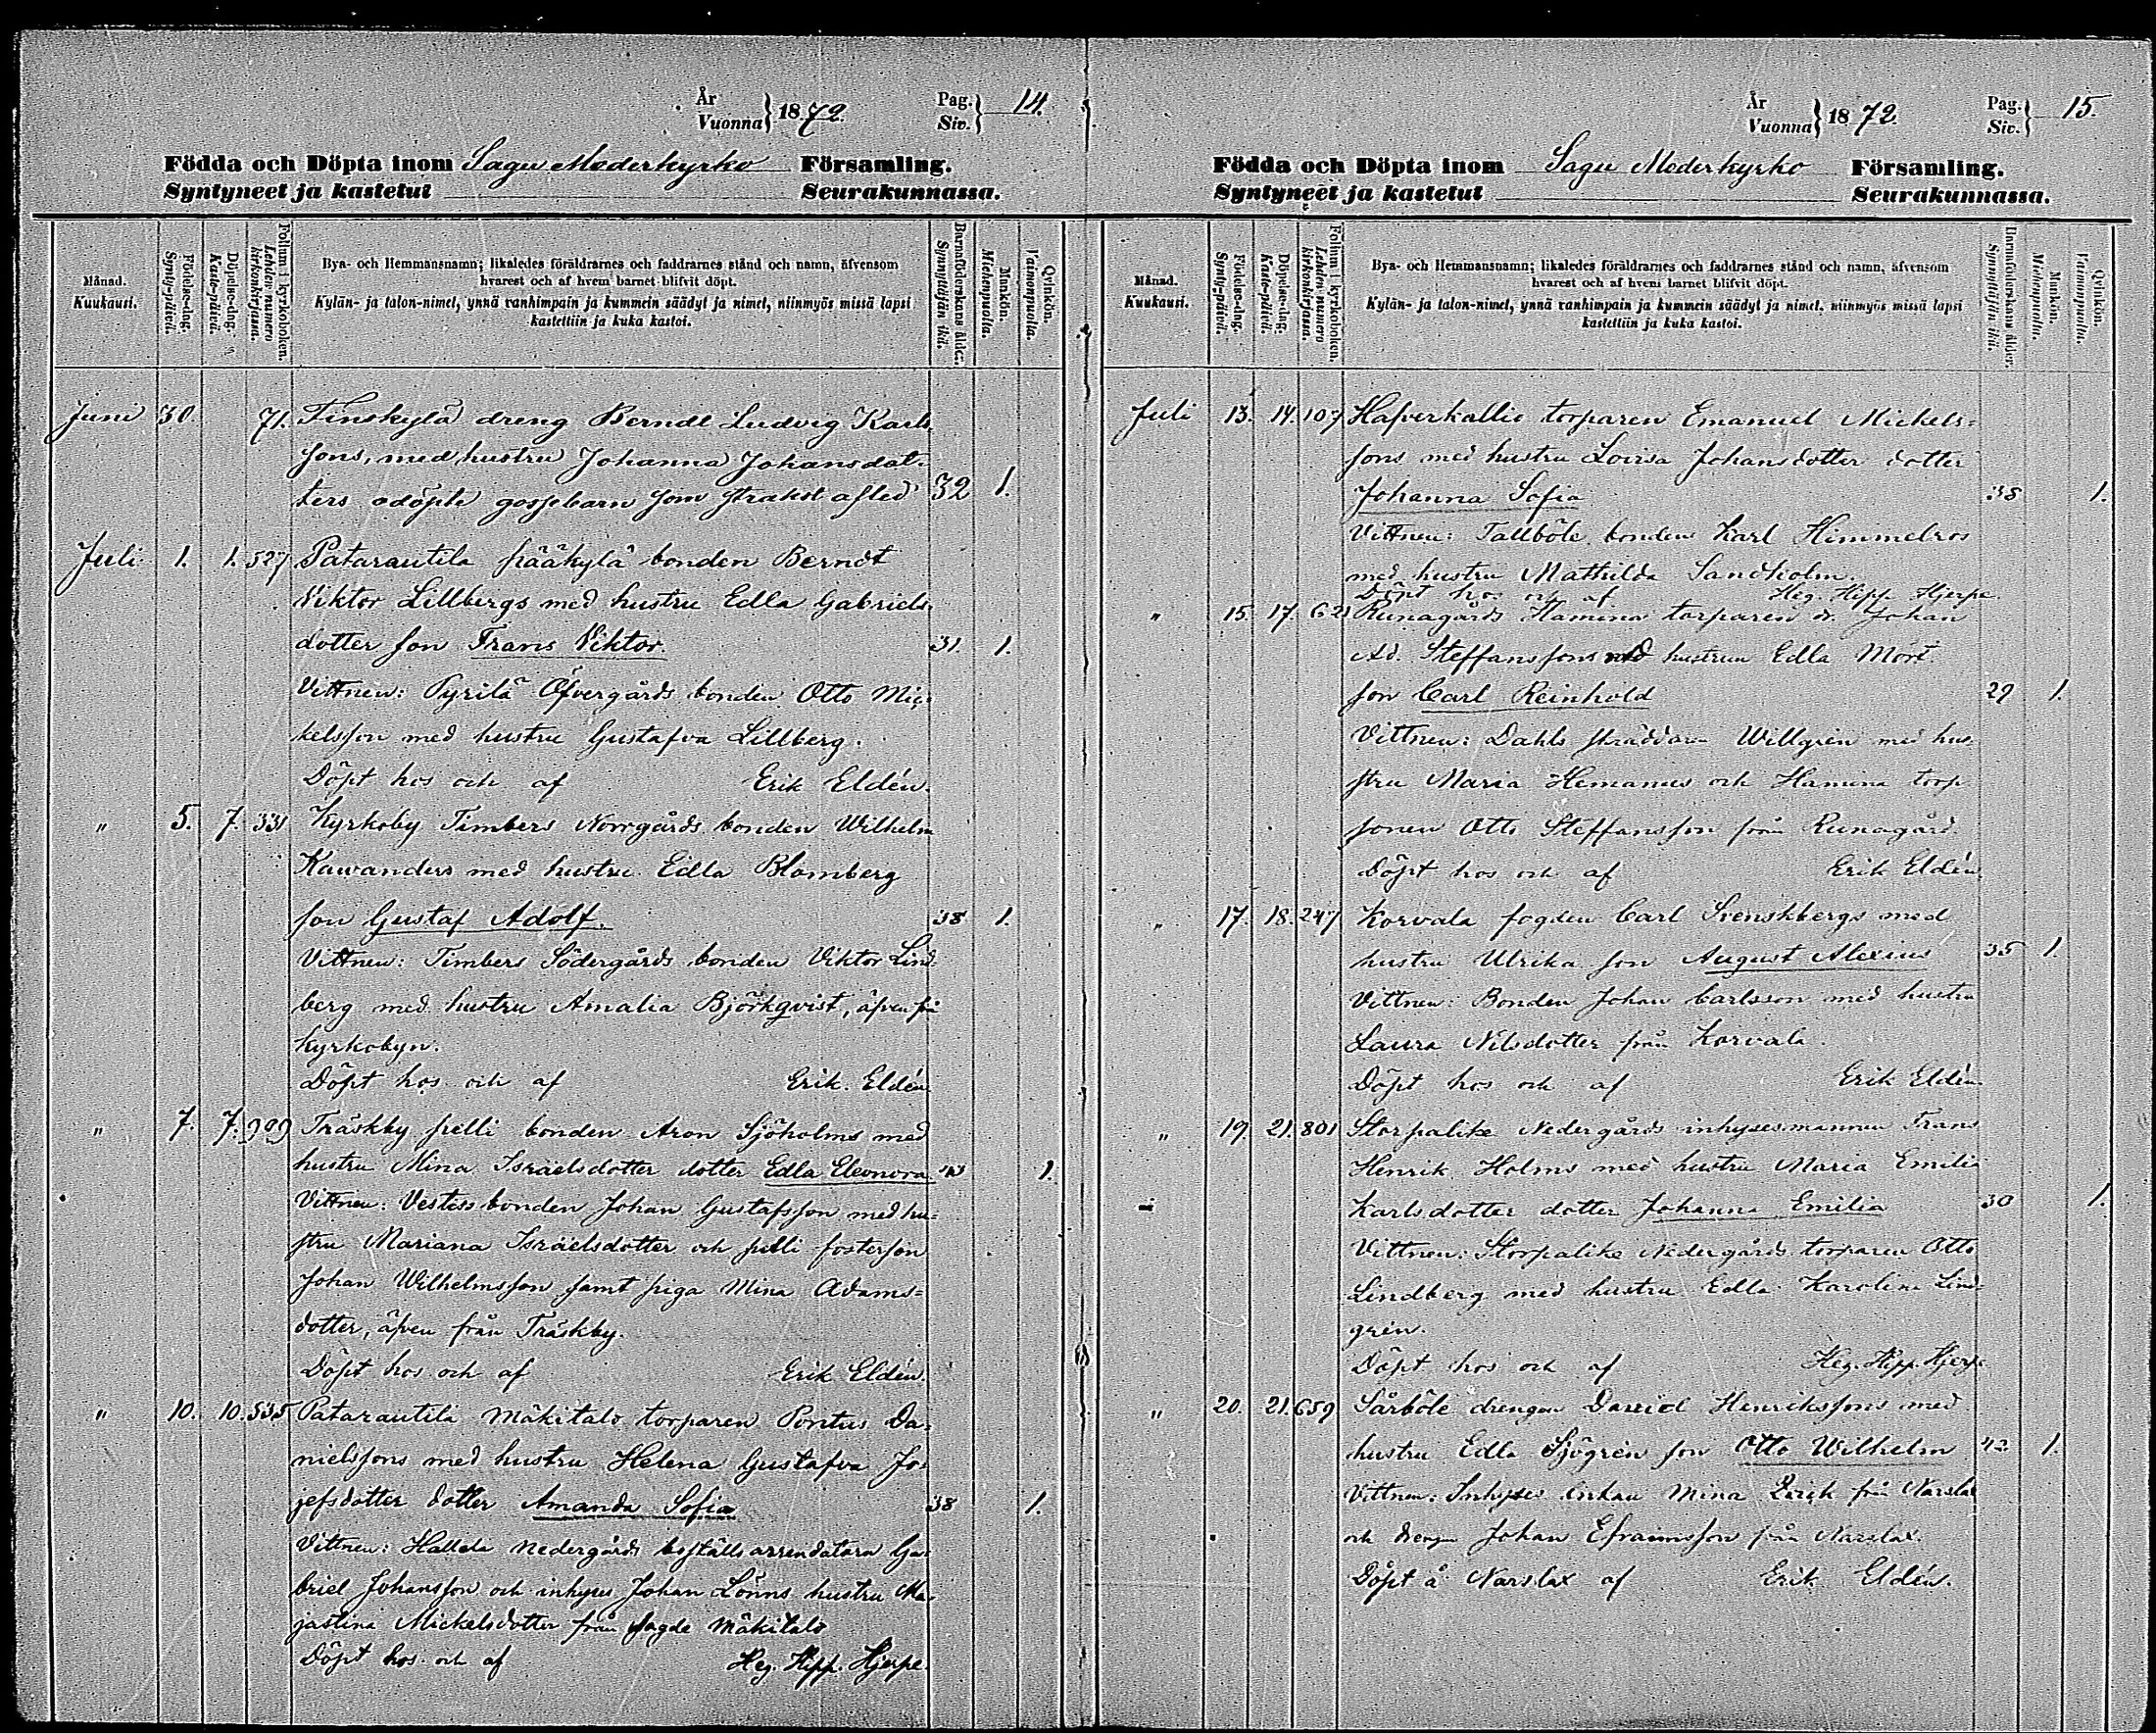 År
Vuonna } 1872.
Pag.
Siv. } 14.
Födda och Döpta inom Sagu Moderkyrko Församling.
Syntyneet ja kastetut Seurakunnassa.
Månad.
Kuukausi.
Födelse-dag.
Synty-päivä.
Döpelse-dag.
Kaste-päivä.
Folium i kyrkoboken.
Lehden numero kirkonkirjassa.
Bya- och Hemmansnamn; likaledes föräldrarnes och faddrarnes stånd och namn, äfvensom
hvarest och af hvem barnet blifvit döpt.
Kylän- ja talon-nimet, ynnä vanhimpain ja kummein säädyt ja nimet, niinmyös missä lapsi
kastettiin ja kuka kastoi.
Barnaföderskans ålder.
Synnyttäjän ikä.
Mankön.
Miehenpuolta.
Qvinkön.
Vaimonpuolta.
Juni 30. 71. Finskylä dreng Berndt Ludvig Karls
sons, med hustru Johanna Johansdot-
ters odöpte gossebarn som strakst afled 32 1.
Juli 1. 1. 527 Patarautila pääkylä bonden Berndt
Viktor Lillbergs med hustru Edla Gabriels
dotter son Frans Viktor. 31. 1.
Vittnen: Pyrilä Öfvergårds bonden Otto Mic-
kelsson med hustru Gustafva Lillberg.
Döpt hos och af Erik Eldén.
" 5. 7. 331 Kyrkoby Timbers Norrgårds bonden Wilhelm
Kawanders med hustru Edla Blomberg
son Gustaf Adolf. 38 1.
Vittnen: Timbers Södergårds bonden Viktor Lind-
berg med hustru Amalia Björkqvist, äfven från
Kyrkobyn.
Döpt hos och af Erik Eldén
" 7. 7. 399 Träskby pelli bonden Aron Sjöholms med
hustru Mina Israelsdotter dotter Edla Eleonora. 1.
Vittnen: bonden Johan Gustafsson med hu-
stru Mariana Israelsdotter och pelli fosterson
Johan Wilhelmsson samt piga Mina Adams-
dotter, äfven från Träskby.
Döpt hos och af Erik Eldén.
" 10. 10. 535 Patarautila Mäkitalo torparen Pontus Da-
nielssons med hustru Helena Gustafva Jo-
sefsdotter dotter Amanda Sofia 38 1.
Vittnen: Hallela Nedergårds boställs arrendatorn Ga-
briel Johansson och inhyses Johan Lönns hustru Ma-
jastina Mickelsdotter från sagde Mäkitalo
Döpt hos och af Heg. Hipp. Hjerpe.
År
Vuonna } 1872.
Pag.
Siv. } 15.
Födda och Döpta inom Sagu Moderkyrko Församling.
Syntyneet ja kastetut Seurakunnassa.
Månad.
Kuukausi.
Födelse-dag.
Synty-päivä.
Döpelse-dag.
Kaste-päivä.
Folium i kyrkoboken.
Lehden numero kirkonkirjassa.
Bya- och Hemmansnamn; likaledes föräldrarnes och faddrarnes stånd och namn, äfvensom
hvarest och af hvem barnet blifvit döpt.
Kylän- ja talon-nimet, ynnä vanhimpain ja kummein säädyt ja nimet, niinmyös missä lapsi
kastettiin ja kuka kastoi.
Barnaföderskans ålder.
Synnyttäjän ikä.
Mankön.
Miehenpuolta.
Qvinkön.
Vaimonpuolta.
Juli 13. 14. 107 Hafverkallio torparen Emanuel Mickels-
sons med hustru Lovisa Johansdotter dotter
Johanna Sofia 38 1.
Vittnen: Tallböle bonden Karl Himmelros
med hustru Mathilda Sandholm.
Döpt hos och af Heg. Hipp. Hjerpe.
" 15. 17. 621 Runagårds Hamina torparen Johan
Ad. Steffanssons med hustrun Edla Mort.
son Carl Reinhold 29 1.
Vittnen: Dahls skräddaren Willgrén med hus-
stru Maria Hemanus och Hamina torp.
sonen Otto Steffansson från Runagård.
Döpt hos och af Erik Eldén
" 17. 18. 247 Korvala fogden Carl Svenskbergs med
hustru Ulrika son August Alexius 35 1.
Vittnen: Bonden Johan Carlsson med hustru
Laura Nilsdotter från Korvala.
Döpt hos och af Erik Eldén.
" 19. 21. 801 Storpalike Nedergårds inhysesmannen Frans
Henrik Holms med hustru Maria Emilia
Karlsdotter dotter Johanna Emilia 30 1.
Vittnen: Storpalike Nedergårds torparen Otto
Lindberg med hustru Edla Karolina Lind-
grén.
Döpt hos och af Heg. Hipp. Hjerpe
" 20. 21. 659 Sårböle drengen David Henrikssons med
hustru Edla Sjögrén son Otto Wilhelm 42 1.
Vittnen: Inhyses enkan Mina från Narslax
och drengen Johan Efraimsson från Narslax.
Döpt å Narslax af Erik Eldén.